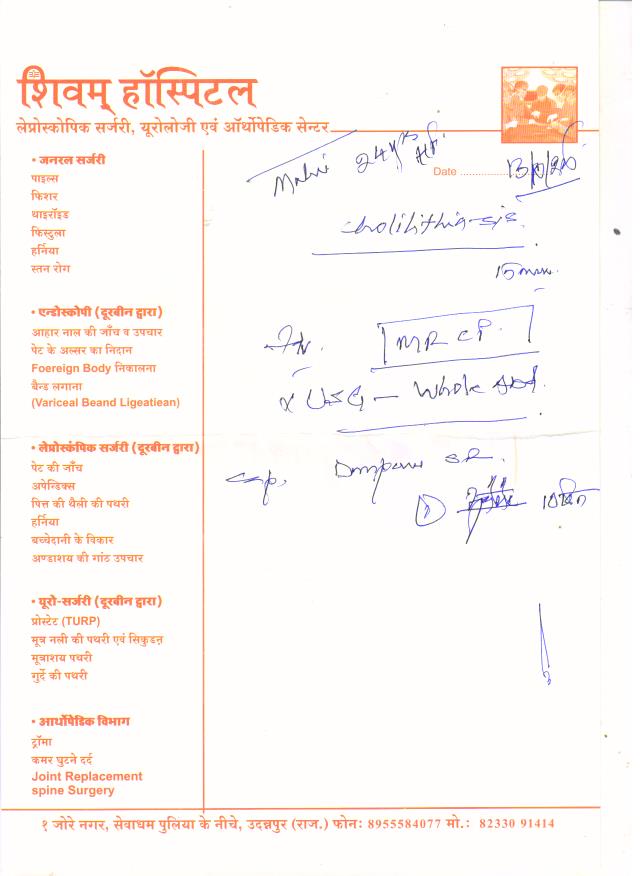 शिवम् हॉस्पिटल
लेप्रोस्कोपिक सर्जरी, यूरोलोजी एवं ऑर्थोपेडिक सेन्टर
24 yrs
Date ..............
• जनरल सर्जरी
पाइल्स
फिशर
थाइरॉइड
फिस्टुला
हर्निया
स्तन रोग
cholilithia-sis
15 mm.
• एन्डोस्कोपी (दूरबीन द्वारा)
आहार नाल की जाँच व उपचार
पेट के अल्सर का निदान
Foereign Body निकालना
बैन्ड लगाना
(Variceal Beand Ligeatiean)
MRCP.
USG - Whole Abd.
• लेप्रोस्कंपिक सर्जरी (दूरबीन द्वारा)
पेट की जाँच
अपेन्डिक्स
पित्त की थैली की पथरी
हर्निया
बच्चेदानी के विकार
अण्डाशय की गांठ उपचार
Cap. SR.
① 10 दिन
• यूरो-सर्जरी (दूरबीन द्वारा)
प्रोस्टेट (TURP)
मूत्र नली की पथरी एवं सिकुडन
मूत्राशय पथरी
गुर्दे की पथरी
• आर्थोपेडिक विभाग
ट्रॉमा
कमर घुटने दर्द
Joint Replacement
spine Surgery
१ जोरे नगर, सेवाधम पुलिंया के नीचे, उदन्नपुर (राज.) फोनः 8955584077 मो.: 82330 91414